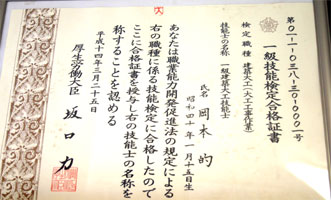 第〇一-一-〇三八-三〇-〇〇〇一号
一級技能検定合格証書
検定職種 建築大工(大工工事作業)
技能士の名称 一級建築大工技能士
氏名 岡本 的
昭和四十年一月十五日生
あなたは職業能力開発促進法の規定による
右の職種に係る技能検定に合格したので
ここに合格証書を授与し右の技能士の名称を
称することを認める
平成十四年三月二十五日
厚生労働大臣 坂口 力